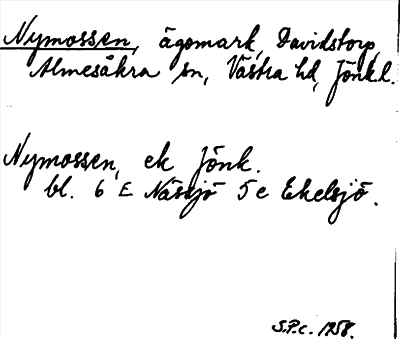 Nymossen, ägomark, Davidstorp,
Almesåkra sn, Västra hd, Jönk.l.
Nymossen, ek Jönk.
bl. 6 E Nässjö 5 e Ekelsjö.
S.P.c. 1958.